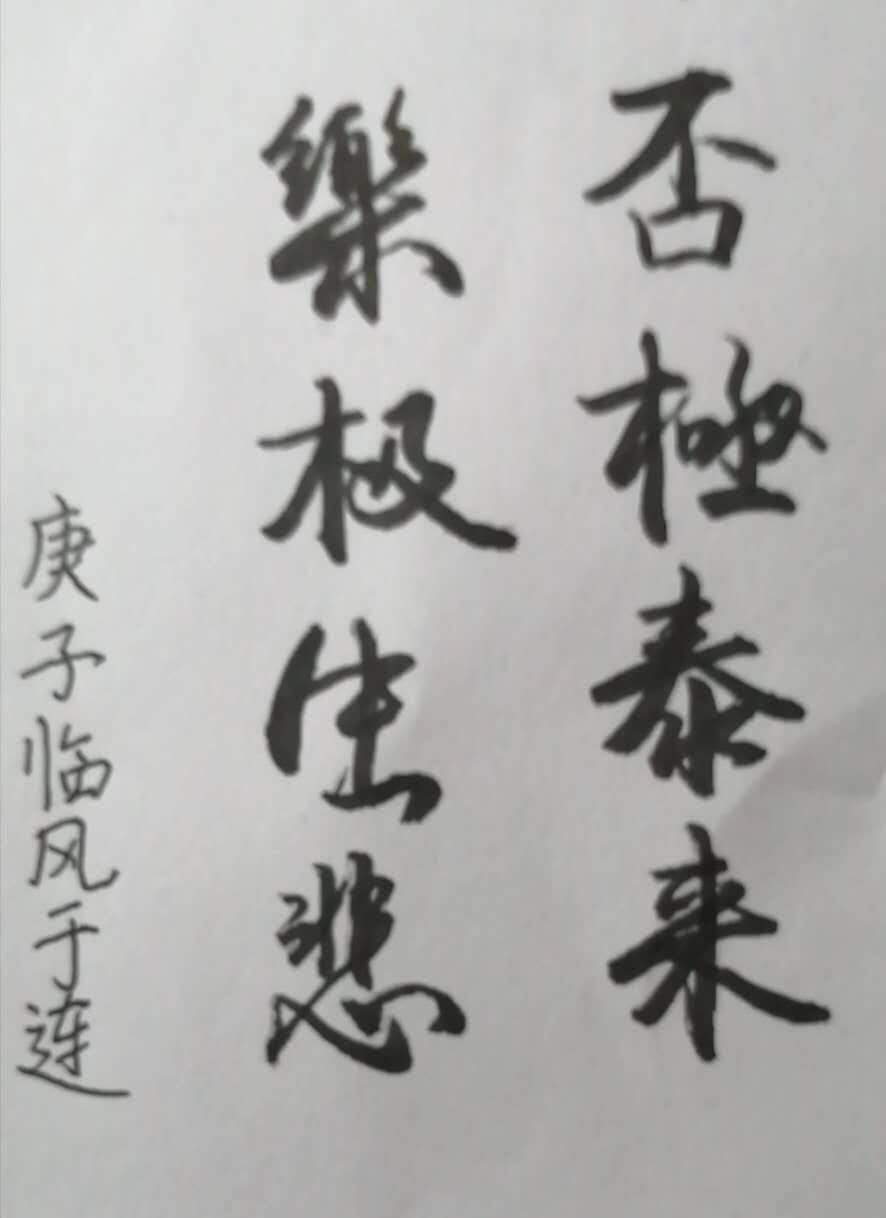 否極泰来
樂极生悲
庚子临风于连